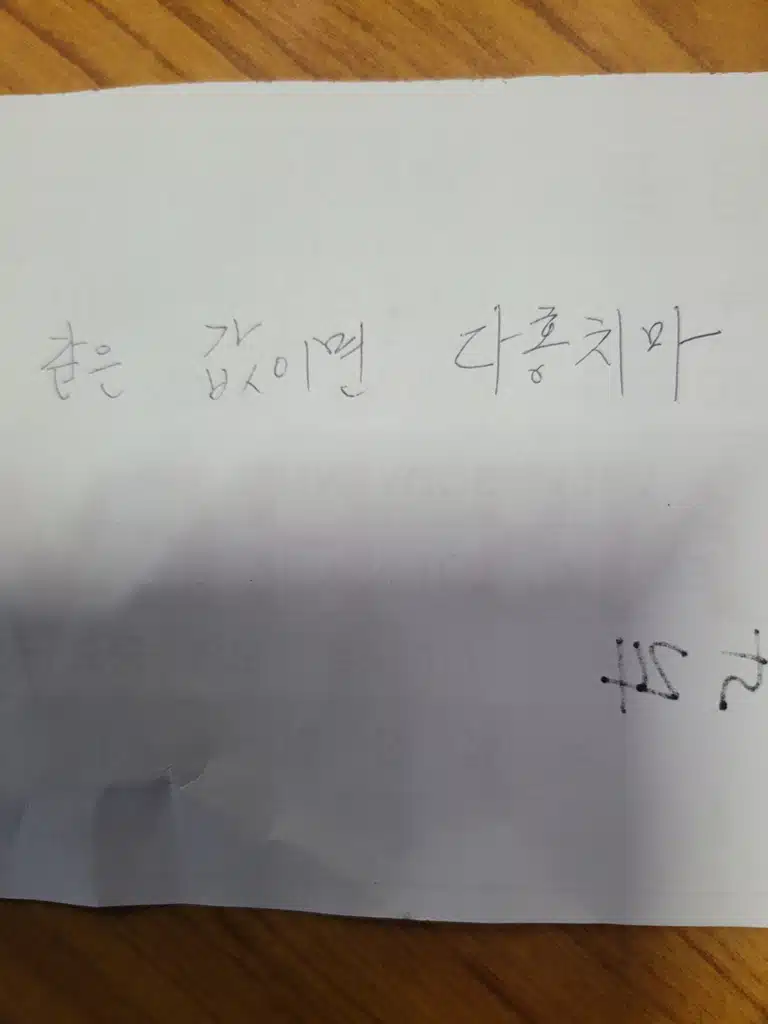 같은 값이면 다홍치마